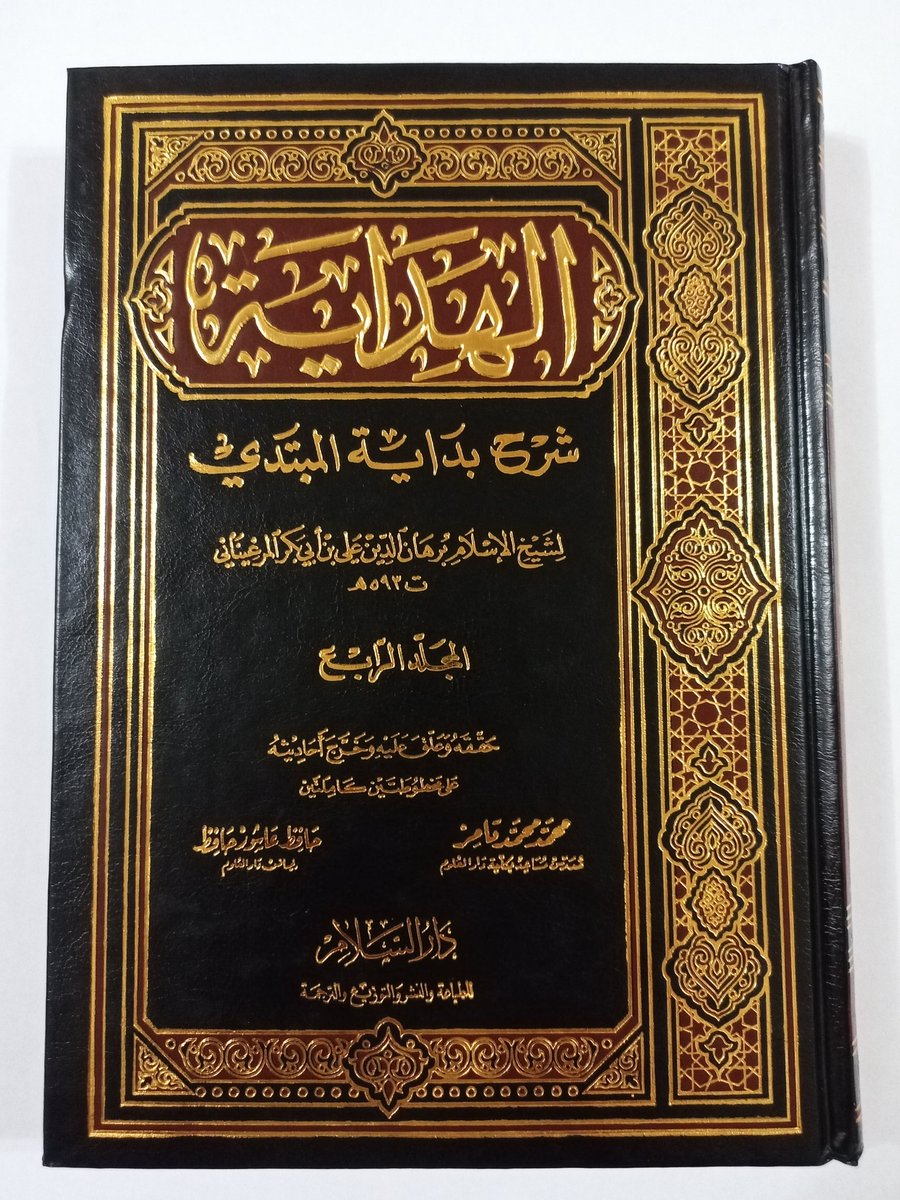 الهِدَاية
شَرْح بدَاية المبتَدي
لشَيْخ الإسْلَام بُرهَان الدِّين عَلي بن أبي بَكر المَرغِيناني
ت ٥٩٣هـ
المجَلّد الرَّابع
حَقّقَهُ وَعَلّق عَلَيه وَخَرَّج أَحَاديثهُ
عَلى مخطُوطَتَين كامِلَتَين
محمَّد محمَّد تامر
حَافِظ عَاشُور حَافِظ
مُدَرّس مُسَاعِد بكليّة دَار العُلوم
دَار العُلوم
دَارُ السَّلَام
للطباعة والنشر والتوزيع والترجمة